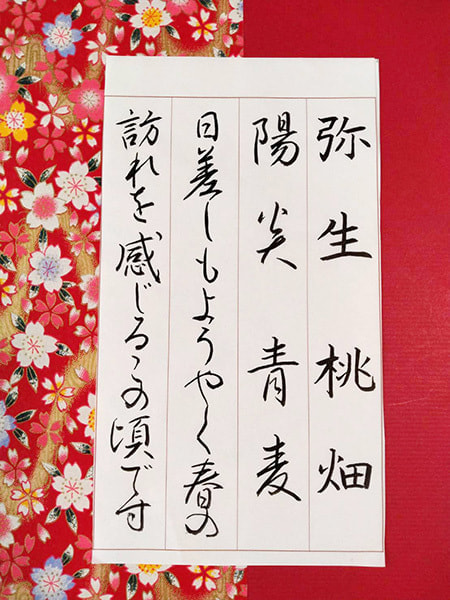 弥生 桃畑
陽炎 青麦
日差しもようやく春の
訪れを感じるこの頃です